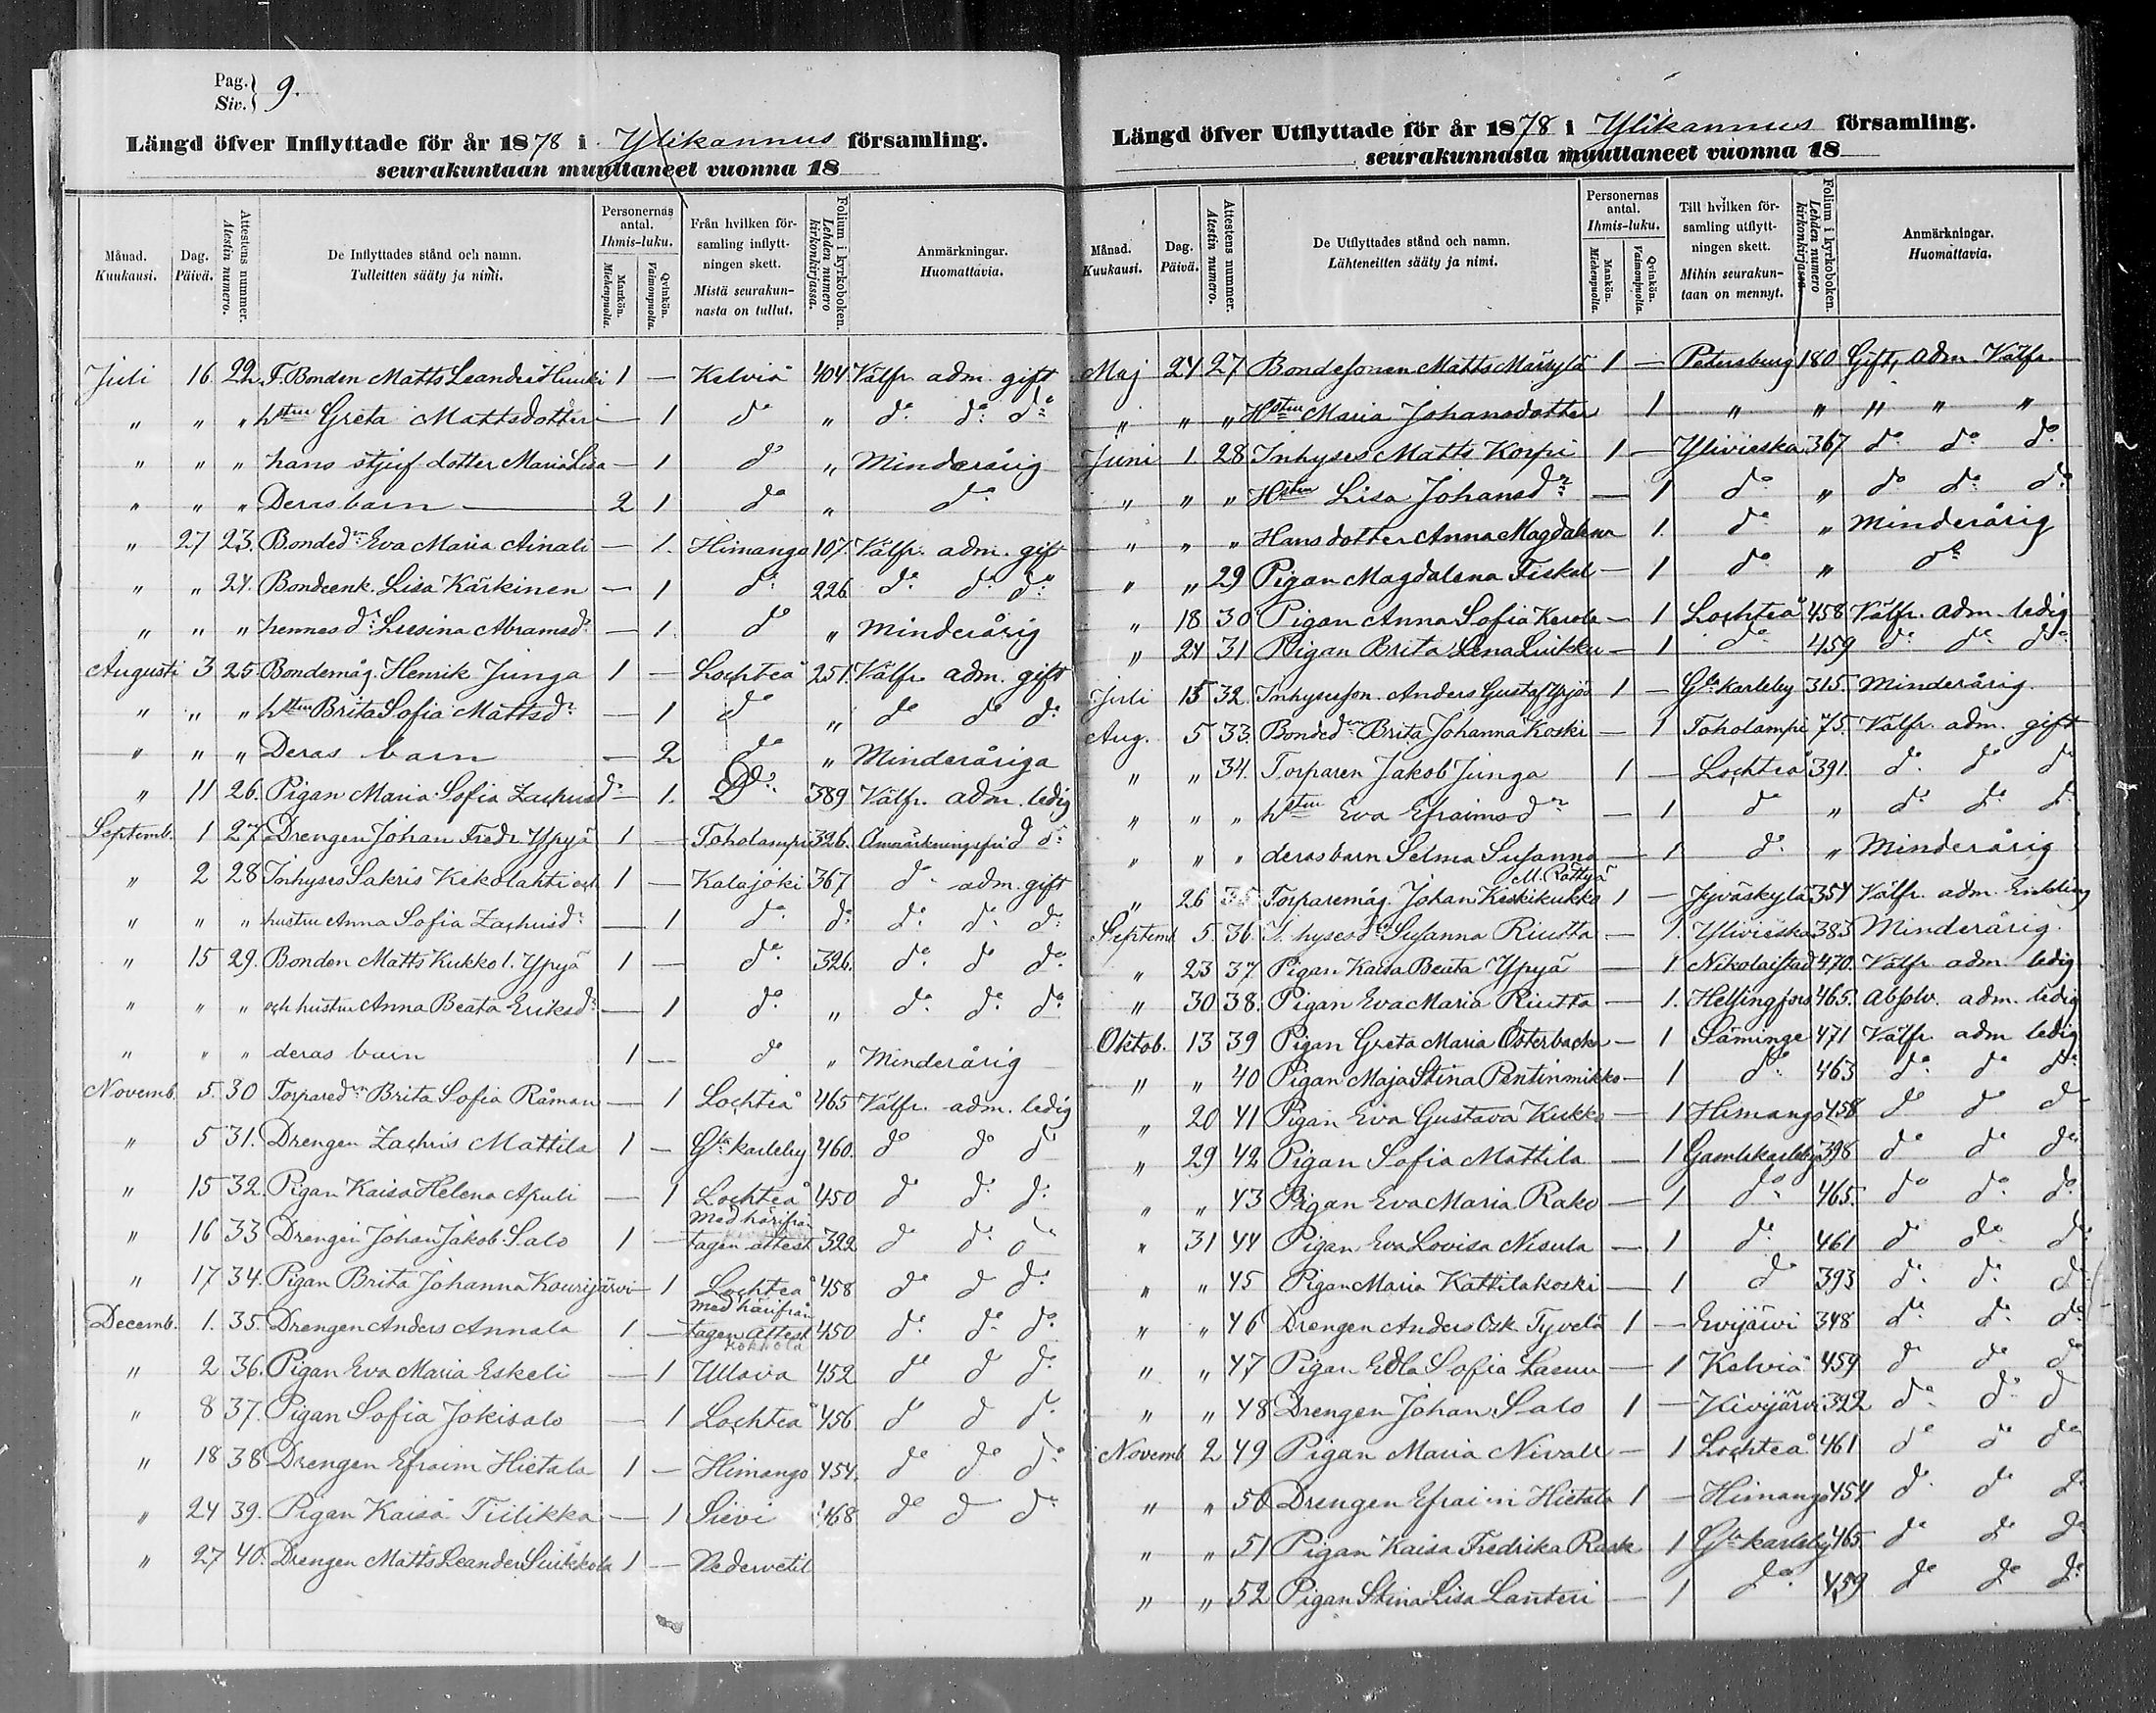 Pag. 9.
Siv.
Längd öfver Inflyttade för år 1878 i Ylikannus församling.
seurakuntaan muuttaneet vuonna 18
Månad. Kuukausi.
Dag. Päivä.
Attestens nummer. Atestin numero.
De Inflyttades stånd och namn. Tulleitten sääty ja nimi.
Personernas antal. Ihmis-luku.
Mankön. Miehenpuolta.
Qvinkön. Vaimonpuolta.
Från hvilken församling inflyttningen skett. Mistä seurakunnasta on tullut.
Folium i kyrkoboken. Lehden numero kirkonkirjassa.
Anmärkningar. Huomattavia.
Juli 16 22. F. Bonden Matts Leander Huuki 1 — Kelviå 404 Välfr. adm. gift
" " " hstru Greta Mattsdotter — 1 do " do do do
" " " hans stjuf dotter Maria Lisa — 1 do " Minderårig
" " " Deras barn 2 1 do " do
" 27 23. Bondedn Eva Maria Ainali — 1. Himango 107. Välfr. adm. gift
" " 24. Bondeenk. Lisa Kärkinen — 1 do 226 do do do
" " " hennes dr Lusina Abramsdr — 1. do " Minderårig
Augusti 3 25. Bondemåg. Henrik Junga 1 — Lochteå 251. Välfr. adm. gift
" " " hstru Brita Sofia Mattsdr — 1 do " do do do
" " " Deras barn — 2 do " Minderåriga
" 11 26. Pigan Maria Sofia Zachrisdr — 1. Do 389 Välfr. adm. ledig
Septemb. 1 27 Drengen Johan Fredr Ypyä 1 — Toholampi 326. Anmärkningsfri d do
" 2 28 Inhyses Sakris Kekolahti och 1 — Kalajoki 367 do adm. gift
" " " hustru Anna Sofia Zachrisdr — 1 do do do do do
" 15 29. Bonden Matts Kukko l. Ypyä 1 — do 326. do do do
" " " och hustru Anna Beata Eriksdr — 1 do " do do do
" " " deras barn 1 — do " Minderårig
Novemb. 5. 30 Torparedn Brita Sofia Råman — 1 Lochteå 465 Välfr. adm. ledig
" 5 31. Drengen Zachris Mattila 1 — Gla karleby 460. do do do
" 15 32. Pigan Kaisa Helena Apuli — 1 Lochteå 450 do do do
" 16 33 Drengen Johan Jakob Salo 1 — Med härifrån tagen attest 322 do do do
" 17 34. Pigan Brita Johanna Kourijärvi — 1 Lochteå 458 do do do
Decemb. 1. 35. Drengen Anders Annala 1 — med härifrån tagen attest Kokkola 450 do do do
" 2 36. Pigan Eva Maria Eskeli — 1 Ullava 452 do do do
" 8 37. Pigan Sofia Jokisalo — 1 Lochteå 456 do do do
" 18 38 Drengen Efraim Hietala 1 — Himango 454. do do do
" 24 39. Pigan Kaisa Tiilikka — 1 Sievi 468 do do do
" 27 40. Drengen Matts Leander Siikkola 1 — Nedervetil
Längd öfver Utflyttade för år 1878 i Ylikannus församling.
seurakunnasta muuttaneet vuonna 18
Månad. Kuukausi.
Dag. Päivä.
Attestens nummer. Atestin numero.
De Utflyttades stånd och namn. Lähteneitten sääty ja nimi.
Personernas antal. Ihmis-luku.
Mankön. Miehenpuolta.
Qvinkön. Vaimonpuolta.
Till hvilken församling utflyttningen skett. Mihin seurakuntaan on mennyt.
Folium i kyrkoboken. Lehden numero kirkonkirjassa.
Anmärkningar. Huomattavia.
Maj 24 27 Bondesonen Matts Märsylä 1 — Petersburg 180 Gift, adm Välfr.
" " " Hstru Maria Johansdotter 1 " " " " "
Juni 1. 28 Inhyses Matts Korpi 1 — Ylivieska 367 do do do
" " " Hstru Lisa Johansdr — 1 do " do do do
" " " Hans dotter Anna Magdalena 1. do " Minderårig
" " 29 Pigan Magdalena Fiskal — 1 do " do
" 18 30 Pigan Anna Sofia Karola — 1 Lochteå 458 Välfr. adm. ledig
" 24 31 Pigan Brita Lena Luikku — 1 do 459 do do do
Juli 15 32. Inhysesson. Anders Gustaf Yrjös 1 — Gla karleby 315. Minderårig.
Aug. 5 33. Bondedn Brita Johanna Koski — 1 Toholampi 75. Välfr. adm. gift
" " 34. Torparen Jakob Junga 1 — Lochteå 391. do do do
" " " hstru Eva Efraimsdr — 1 do " do do do
" " " deras barn Selma Susanna — 1 do " Minderårig
M. Rättyä
" 26 35 Torparemåg. Johan Keskikukko 1 — Jyväskylä 354 Välfr. adm. Enkling
Septemb. 5. 36. I. hysesdn Susanna Riutta — 1. Ylivieska 383 Minderårig.
" 23 37 Pigan Kaisa Beata Ypyä — 1 Nikolaistad 470. Välfr adm. ledig
" 30 38. Pigan Eva Maria Riutta — 1. Helsingfors 465. Absolv. adm. ledig
Oktob. 13 39 Pigan Greta Maria Österbacka — 1 Säminge 471 Välfr. adm ledig
" " 40 Pigan Maja Stina Pentinmikko — 1 do 463 do do do
" 20 41 Pigan Eva Gustava Kukko — 1 Himango 458 do do do
" 29 42 Pigan Sofia Mattila — 1 Gamlekarleby 398 do do do
" " 43 Pigan Eva Maria Rako — 1 do 465. do do do
" 31 44 Pigan Eva Lovisa Nisula — 1 do 461 do do do
" " 45 Pigan Maria Kattilakoski — 1 do 393 do do do
" " 46 Drengen Anders Osk. Tyvelä 1 — Evijärvi 348 do do do
" " 47 Pigan Edla Sofia Lasuu — 1 Kelviå 459 do do do
" " 48 Drengen Johan Salo 1 — Kivijärvi 322 do do do
Novemb. 2 49 Pigan Maria Nivall — 1 Lochteå 461 do do do
" " 50 Drengen Efraim Hietala 1 — Himango 454 do do do
" " 51 Pigan Kaisa Fredrika Rask 1 Gla karleby 465 do do do
" " 52 Pigan Stina Lisa Lanteri — 1 do 459 do do do